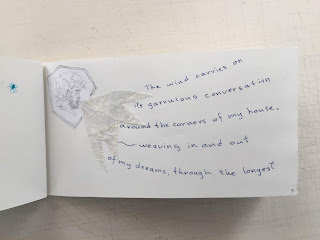 The wind carries on
its garrulous conversation
around the corners of my house,
~ weaving in and out
of my dreams, through the longest